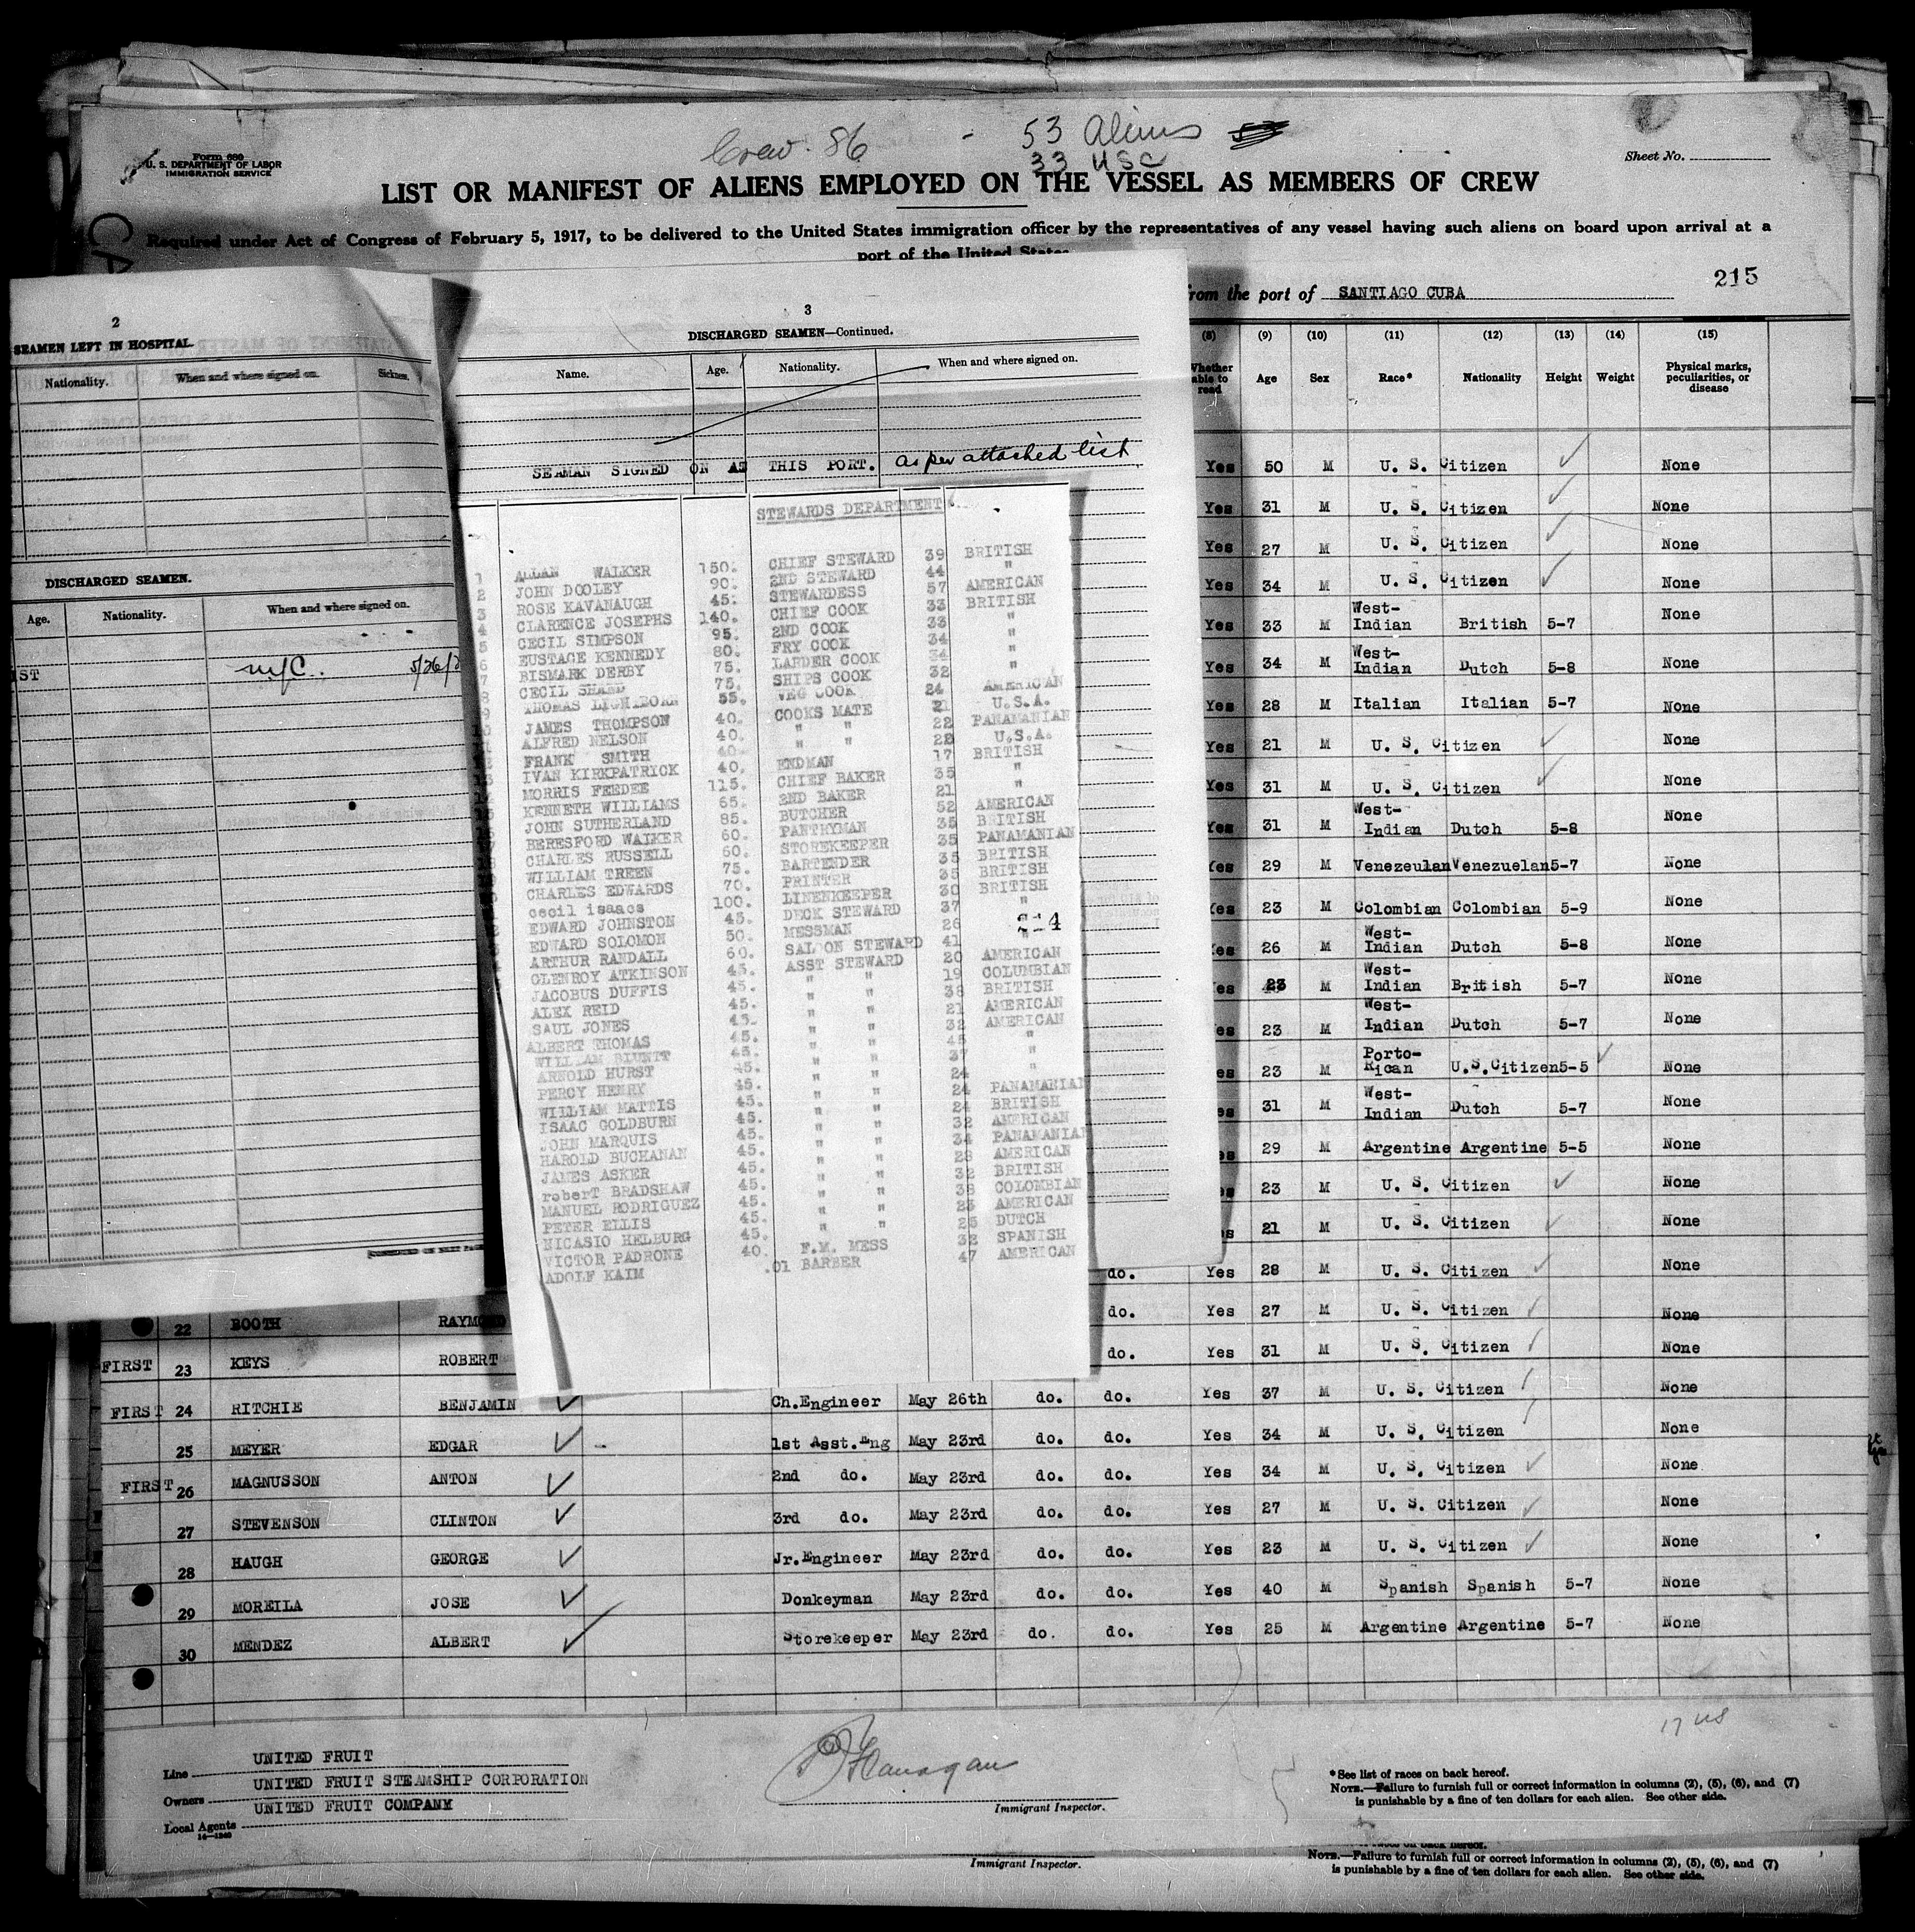 Crew. 86 - 53 Aliens
33 USC
Form 680
U. S. DEPARTMENT OF LABOR
IMMIGRATION SERVICE
Sheet No.
LIST OR MANIFEST OF ALIENS EMPLOYED ON THE VESSEL AS MEMBERS OF CREW
Required under Act of Congress of February 5, 1917, to be delivered to the United States immigration officer by the representatives of any vessel having such aliens on board upon arrival at a
port of the United States
from the port of SANTIAGO CUBA
215
2
SEAMEN LEFT IN HOSPITAL.
Nationality. When and where signed on. Sickness.
DISCHARGED SEAMEN.
Age. Nationality. When and where signed on.
IST
3
DISCHARGED SEAMEN—Continued.
Name. Age. Nationality. When and where signed on.
SEAMAN SIGNED ON AT THIS PORT. as per attached list
STEWARDS DEPARTMENT
1 ALLAN WALKER 150. CHIEF STEWARD 39 BRITISH
2 JOHN DOOLEY 90. 2ND STEWARD 44 "
3 ROSE KAVANAUGH 45. STEWARDESS 57 AMERICAN
4 CLARENCE JOSEPHS 140. CHIEF COOK 33 BRITISH
5 CECIL SIMPSON 95. 2ND COOK 33 "
6 EUSTACE KENNEDY 80. FRY COOK 34 "
7 BISMARK DERBY 75. LARDER COOK 34 "
8 CECIL 75. SHIPS COOK 32 "
9 THOMAS 55. VEG COOK 24 AMERICAN
JAMES THOMPSON 40. COOKS MATE 21 U.S.A.
ALFRED NELSON 40. " " 22 PANAMANIAN
FRANK SMITH 40 " " 22 U.S.A.
IVAN KIRKPATRICK 40. ENDMAN 17 BRITISH
MORRIS FEEDEE 115. CHIEF BAKER 35 "
KENNETH WILLIAMS 65. 2ND BAKER 21 "
JOHN SUTHERLAND 85. BUTCHER 52 AMERICAN
BERESFORD WALKER 60. PANTRYMAN 35 BRITISH
CHARLES RUSSELL 60. STOREKEEPER 35 PANAMANIAN
WILLIAM TREEN 75. BARTENDER 35 BRITISH
CHARLES EDWARDS 70. PRINTER 35 BRITISH
cecil isaacs 100. LINENKEEPER 30 BRITISH
EDWARD JOHNSTON 45. DECK STEWARD 37 "
EDWARD SOLOMON 50. MESSMAN 26 214
ARTHUR RANDALL 60. SALOON STEWARD 41 "
GLENROY ATKINSON 45. ASST STEWARD 20 AMERICAN
JACOBUS DUFFIS 45. " " 19 COLUMBIAN
ALEX REID 45. " " 38 BRITISH
SAUL JONES 45. " " 21 AMERICAN
ALBERT THOMAS 45. " " 32 AMERICAN
WILLIAM BLUNTT 45. " " 45 "
ARNOLD HURST 45. " " 37 "
PERCY HENRY 45. " " 24 "
WILLIAM MATTIS 45. " " 24 PANAMANIAN
ISAAC GOLDBURN 45. " " 24 BRITISH
JOHN MARQUIS 45. " " 32 AMERICAN
HAROLD BUCHANAN 45. " " 34 PANAMANIAN
JAMES ASKER 45. " " 28 AMERICAN
robert BRADSHAW 45. " " 32 BRITISH
MANUEL RODRIGUEZ 45. " " 38 COLOMBIAN
PETER ELLIS 45. " " 23 AMERICAN
NICASIO HELBURG 45. " " 25 DUTCH
VICTOR PADRONE 40. F.M. MESS 32 SPANISH
ADOLF KAIM .01 BARBER 47 AMERICAN
(8) (9) (10) (11) (12) (13) (14) (15)
Whether able to read Age Sex Race* Nationality Height Weight Physical marks, peculiarities, or disease
Yes 50 M U. S. Citizen None
Yes 31 M U. S. Citizen None
Yes 27 M U. S. Citizen None
Yes 34 M U. S. Citizen None
Yes 33 M West-Indian British 5-7 None
Yes 34 M West-Indian Dutch 5-8 None
Yes 28 M Italian Italian 5-7 None
Yes 21 M U. S. Citizen None
Yes 31 M U. S. Citizen None
Yes 31 M West-Indian Dutch 5-8 None
Yes 29 M Venezeulan Venezuelan 5-7 None
Yes 23 M Colombian Colombian 5-9 None
Yes 26 M West-Indian Dutch 5-8 None
Yes 23 M West-Indian British 5-7 None
es 23 M West-Indian Dutch 5-7 None
es 23 M Porto-Rican U.S.Citizen 5-5 None
es 31 M West-Indian Dutch 5-7 None
es 29 M Argentine Argentine 5-5 None
es 23 M U. S. Citizen None
s 21 M U. S. Citizen None
do. Yes 28 M U. S. Citizen None
22 BOOTH RAYMOND do. Yes 27 M U. S. Citizen None
FIRST 23 KEYS ROBERT do. Yes 31 M U. S. Citizen None
FIRST 24 RITCHIE BENJAMIN Ch.Engineer May 26th do. do. Yes 37 M U. S. Citizen None
25 MEYER EDGAR 1st Asst.Eng May 23rd do. do. Yes 34 M U. S. Citizen None
FIRST 26 MAGNUSSON ANTON 2nd do. May 23rd do. do. Yes 34 M U. S. Citizen None
27 STEVENSON CLINTON 3rd do. May 23rd do. do. Yes 27 M U. S. Citizen None
28 HAUGH GEORGE Jr.Engineer May 23rd do. do. Yes 23 M U. S. Citizen None
29 MOREILA JOSE Donkeyman May 23rd do. do. Yes 40 M Spanish Spanish 5-7 None
30 MENDEZ ALBERT Storekeeper May 23rd do. do. Yes 25 M Argentine Argentine 5-7 None
17 US
Line UNITED FRUIT
Owners UNITED FRUIT STEAMSHIP CORPORATION
Local Agents UNITED FRUIT COMPANY
14—1240
Flanagan
Immigrant Inspector.
*See list of races on back hereof.
NOTE.—Failure to furnish full or correct information in columns (2), (5), (6), and (7)
is punishable by a fine of ten dollars for each alien. See other side.
Immigrant Inspector.
NOTE.—Failure to furnish full or correct information in columns (2), (5), (6), and (7)
is punishable by a fine of ten dollars for each alien. See other side.